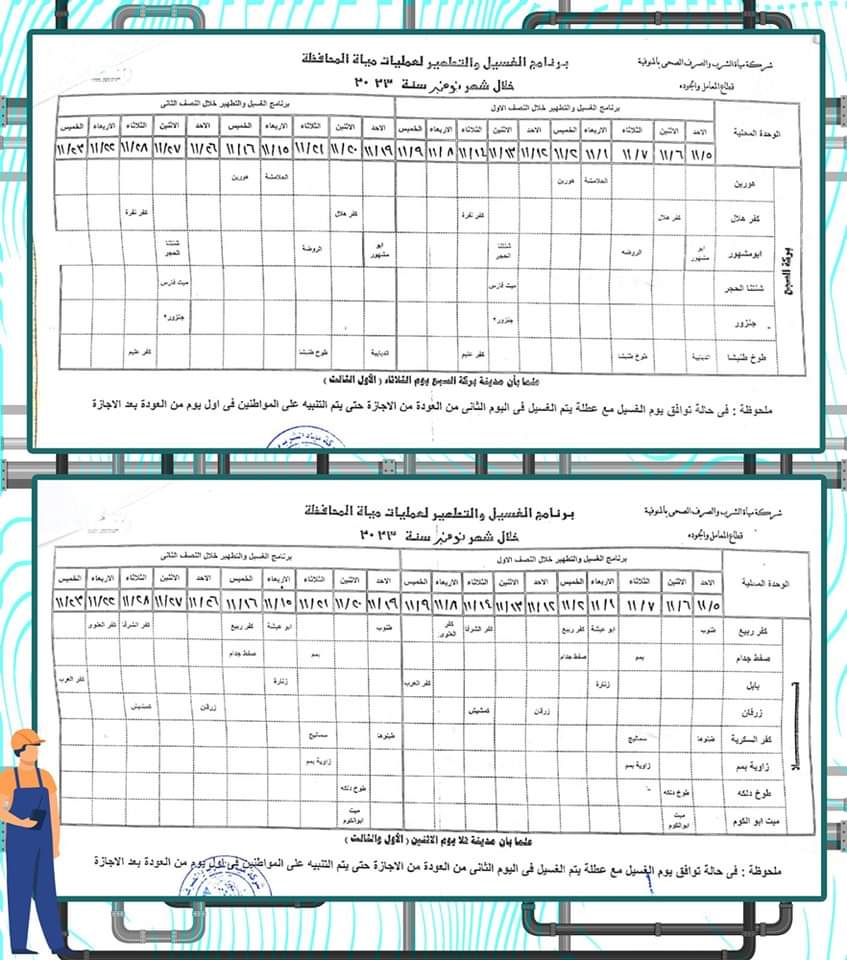 شركة مياة الشرب والصرف الصحى بالمنوفية
قطاع المعامل والجوده
برنامج الغسيل والتطهير لعمليات مياة المحافظة
خلال شهر نوفمبر سنة ٢٠٢٣
الوحدة المحلية
برنامج الغسيل والتطهير خلال النصف الاول
برنامج الغسيل والتطهير خلال النصف الثانى
الاحد الاثنين الثلاثاء الاربعاء الخميس الاحد الاثنين الثلاثاء الاربعاء الخميس الاحد الاثنين الثلاثاء الاربعاء الخميس الاحد الاثنين الثلاثاء الاربعاء الخميس
١١/٥ ١١/٦ ١١/٧ ١١/١ ١١/٢ ١١/١٢ ١١/١٣ ١١/١٤ ١١/٨ ١١/٩ ١١/١٩ ١١/٢٠ ١١/٢١ ١١/١٥ ١١/١٦ ١١/٢٦ ١١/٢٧ ١١/٢٨ ١١/٢٢ ١١/٢٣
بركة السبع
هورين الحلامشة هورين الحلامشة هورين
كفر هلال كفر هلال كفر نفرة كفر هلال كفر نفرة
ابومشهور ابو مشهور الروضه شنتنا الحجر ابو مشهور الروضة شنتنا الحجر
شنتنا الحجر ميت فارس ميت فارس
جنزور جنزور* جنزور*
طوخ طنبشا الدبابية طوخ طنبشا كفر عليم الدبابية طوخ طنبشا كفر عليم
علما بأن مدينة بركة السبع يوم الثلاثاء ( الأول الثالث )
ملحوظة : فى حالة توافق يوم الغسيل مع عطلة يتم الغسيل فى اليوم الثانى من العودة من الاجازة حتى يتم التنبيه على المواطنين فى اول يوم من العودة بعد الاجازة
شركة مياة الشرب والصرف الصحى بالمنوفية
قطاع المعامل والجوده
برنامج الغسيل والتطهير لعمليات مياة المحافظة
خلال شهر نوفمبر سنة ٢٠٢٣
الوحدة المحلية
برنامج الغسيل والتطهير خلال النصف الاول
برنامج الغسيل والتطهير خلال النصف الثانى
الاحد الاثنين الثلاثاء الاربعاء الخميس الاحد الاثنين الثلاثاء الاربعاء الخميس الاحد الاثنين الثلاثاء الاربعاء الخميس الاحد الاثنين الثلاثاء الاربعاء الخميس
١١/٥ ١١/٦ ١١/٧ ١١/١ ١١/٢ ١١/١٢ ١١/١٣ ١١/١٤ ١١/٨ ١١/٩ ١١/١٩ ١١/٢٠ ١١/٢١ ١١/١٥ ١١/١٦ ١١/٢٦ ١١/٢٧ ١١/٢٨ ١١/٢٢ ١١/٢٣
تلا
كفر ربيع طنوب ابو عيشة كفر ربيع كفر الشرفا كفر العلوى طنوب ابو عيشة كفر ربيع كفر الشرفا كفر العلوى
صفط جدام بمم صفط جدام بمم صفط جدام
بابل زنارة كفر العرب زنارة كفر العرب
زرقان زرقان كمشيش زرقان كمشيش
كفر السكرية طنوها سماليج طنوها سماليج
زاوية بمم زاوية بمم زاوية بمم
طوخ دلكه طوخ دلكه طوخ دلكه
ميت ابو الكوم ميت ابوالكوم ميت ابوالكوم
علما بأن مدينة تلا يوم الاثنين ( الأول والثالث )
ملحوظة : فى حالة توافق يوم الغسيل مع عطلة يتم الغسيل فى اليوم الثانى من العودة من الاجازة حتى يتم التنبيه على المواطنين فى اول يوم من العودة بعد الاجازة